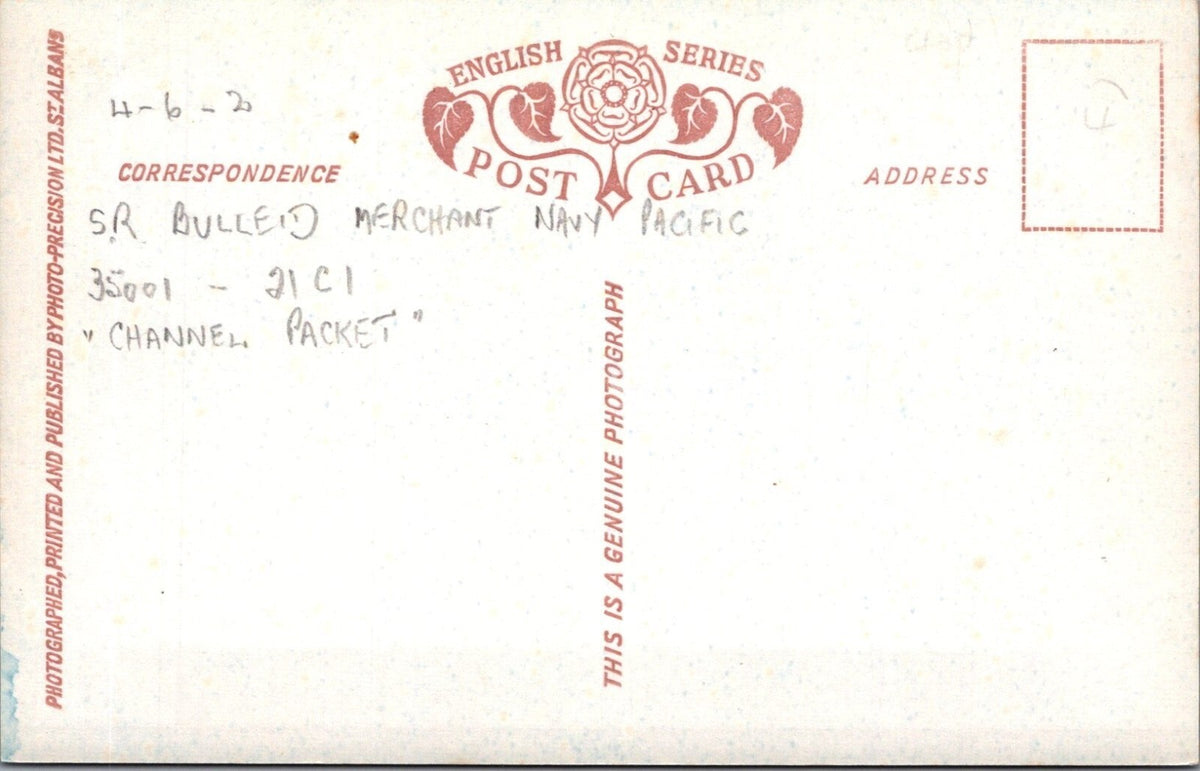 PHOTOGRAPHED, PRINTED AND PUBLISHED BY PHOTO-PRECISION LTD. ST. ALBANS
ENGLISH SERIES
POST CARD
4-6-2
CORRESPONDENCE
ADDRESS
S.R BULLEID MERCHANT NAVY PACIFIC
35001 - 21C1
"CHANNEL PACKET"
THIS IS A GENUINE PHOTOGRAPH